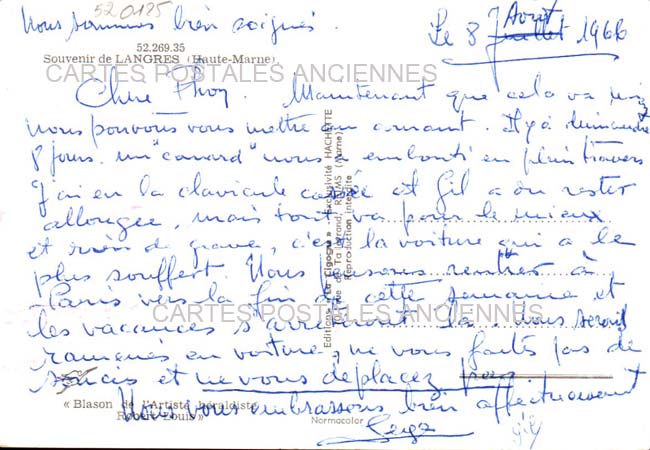 520125
Nous sommes bien soignés.
Le 8 Juillet Aout 1966
52.269.35
Souvenir de LANGRES (Haute-Marne)
CARTES POSTALES ANCIENNES
Chère Maintenant que cela va mieux
nous pouvons vous mettre au courant. Il y a dimanche
8 jours. un "canard" nous a embouti en plein travers
J'ai eu la clavicule cassée et Gil a du rester
allongée, mais tout va pour le mieux
et rien de grave, c'est la voiture qui a le
plus souffert. Nous pensons rentrer à
Paris vers la fin de cette semaine et
CARTES POSTALES ANCIENNES
les vacances s'arrêteront là. Nous serons
ramenés en voiture, ne vous faites pas de
soucis et ne vous déplacez pas.
« Blason de l'Artiste héraldiste
Robert Louis »
Nous vous embrassons bien affectueusement
Normacolor
Editions « La Cigogne » - Exclusivité HACHETTE
REIMS (Marne)
Reproduction interdite